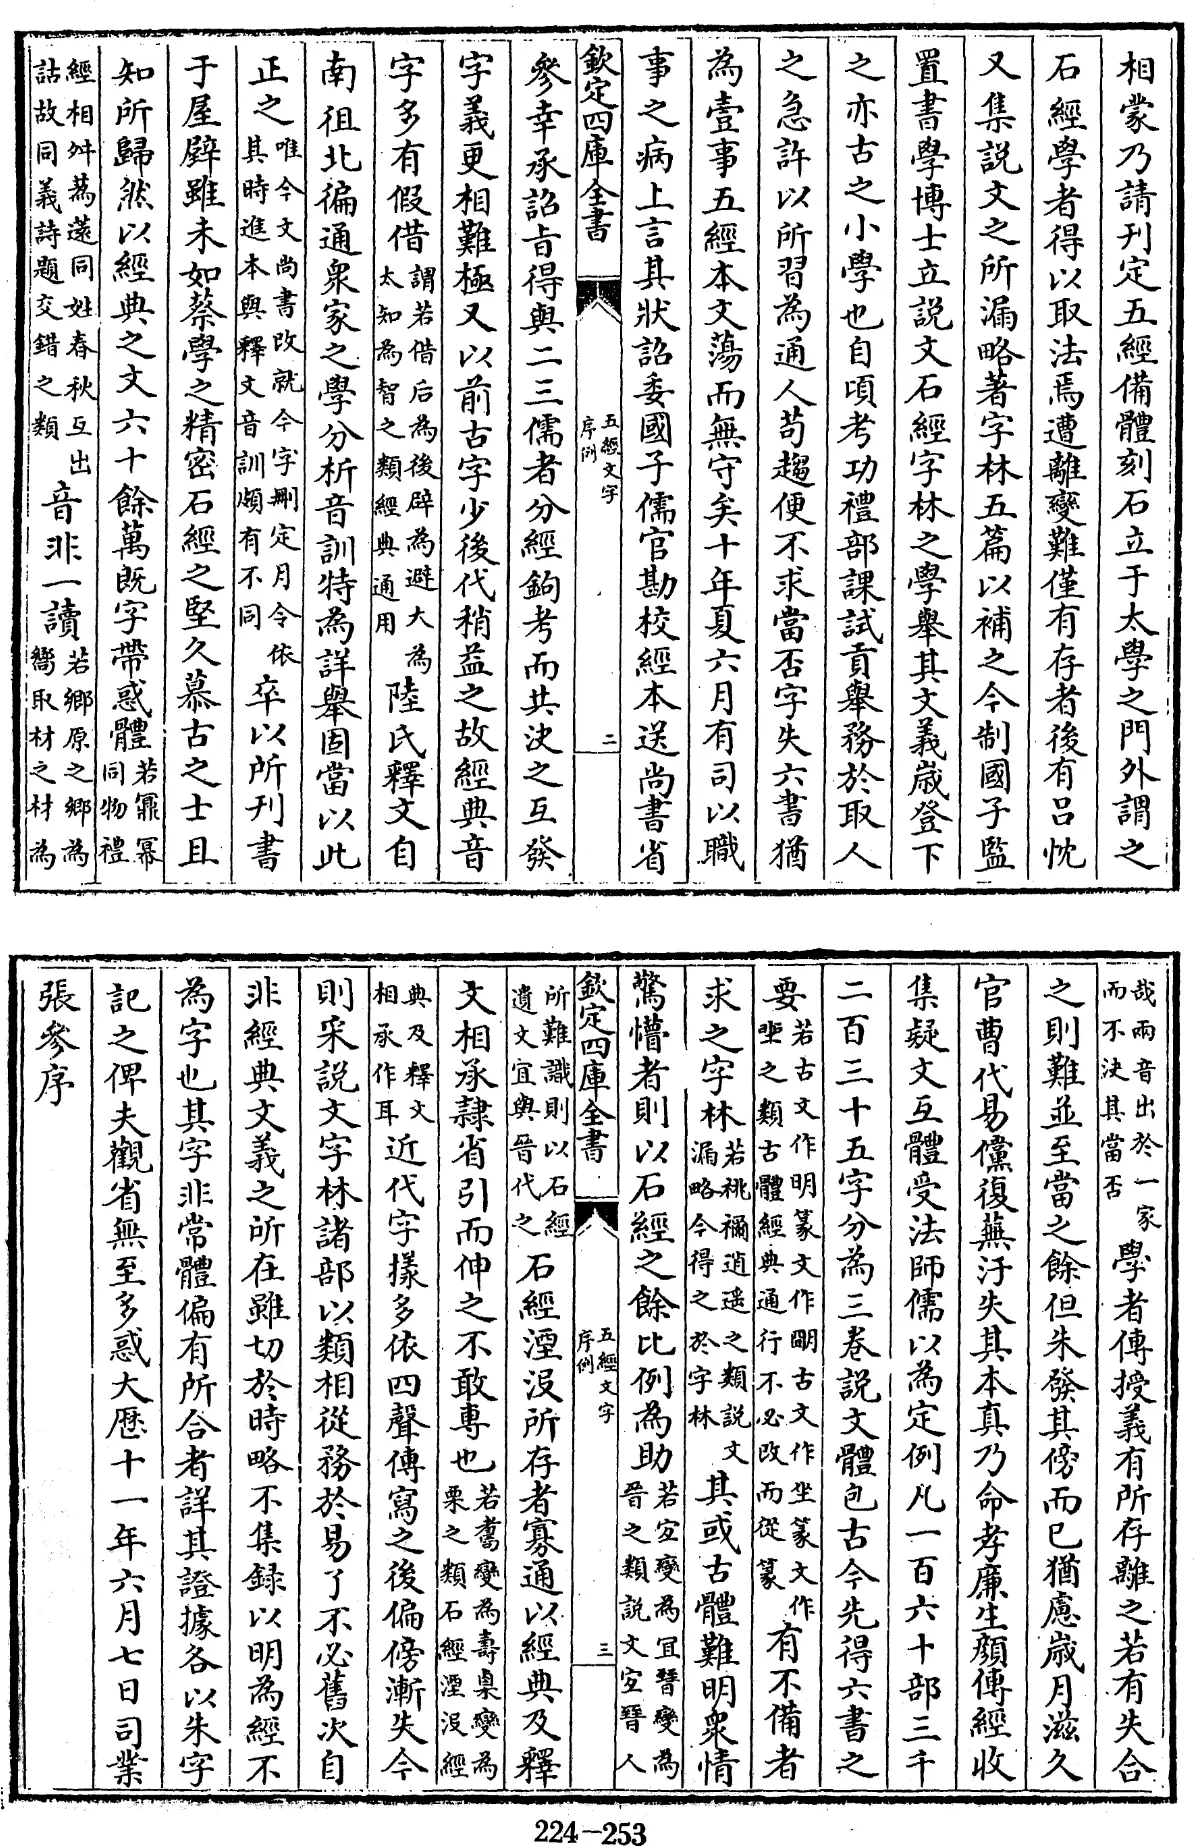 相蒙乃請刊定五經備體刻石立于太學之門外謂之
石經學者得以取法焉遭離變難僅有存者後有呂忱
又集説文之所漏略著字林五篇以補之今制國子監
置書學博士立説文石經字林之學舉其文義歲登下
之亦古之小學也自頃考功禮部課試貢舉務於取人
之急許以所習為通人苟趨便不求當否字失六書猶
為壹事五經本文蕩而無守矣十年夏六月有司以職
事之病上言其狀詔委國子儒官勘校經本送尚書省
欽定四庫全書
五經文字
序例
二
參幸承詔旨得與二三儒者分經鉤考而共決之互發
字義更相難極又以前古字少後代稍益之故經典音
字多有假借謂若借后為後辟為避大為太知為智之類經典通用陸氏釋文自
南徂北徧通衆家之學分析音訓特為詳舉固當以此
正之唯今文尚書改就今字刪定月令依其時進本與釋文音訓頗有不同卒以所刊書
于屋壁雖未如蔡學之精密石經之堅久慕古之士且
知所歸然以經典之文六十餘萬既字帶惑體若鼏冪同物禮
經相舛蒍薳同姓春秋互出詁故同義詩題交錯之類音非一讀若鄉原之鄉為嚮取材之材為
哉兩音出於一家而不決其當否學者傳授義有所存離之若有失合
之則難並至當之餘但朱發其傍而已猶慮歲月滋久
官曹代易儻復蕪汙失其本真乃命孝廉生顏傳經收
集疑文互體受法師儒以為定例凡一百六十部三千
二百三十五字分為三卷説文體包古今先得六書之
要若古文作明篆文作朙古文作坐篆文作𡋲之類古體經典通行不必改而從篆有不備者
求之字林若祧禰逍遥之類説文漏略今得之於字林其或古體難明衆情
驚懵者則以石經之餘比例為助若𡨆變為宜𣊀變為晉之類説文𡨆𣊀人
欽定四庫全書
五經文字
序例
三
所難識則以石經遺文宜與晉代之石經湮沒所存者寡通以經典及釋
文相承隷省引而伸之不敢專也若𦓂變為壽㮚變為栗之類石經湮没經
典及釋文相承作耳近代字㨾多依四聲傳寫之後偏傍漸失今
則采説文字林諸部以類相從務於易了不必舊次自
非經典文義之所在雖切於時略不集録以明為經不
為字也其字非常體偏有所合者詳其證據各以朱字
記之俾夫觀省無至多惑大厯十一年六月七日司業
張參序
224-253